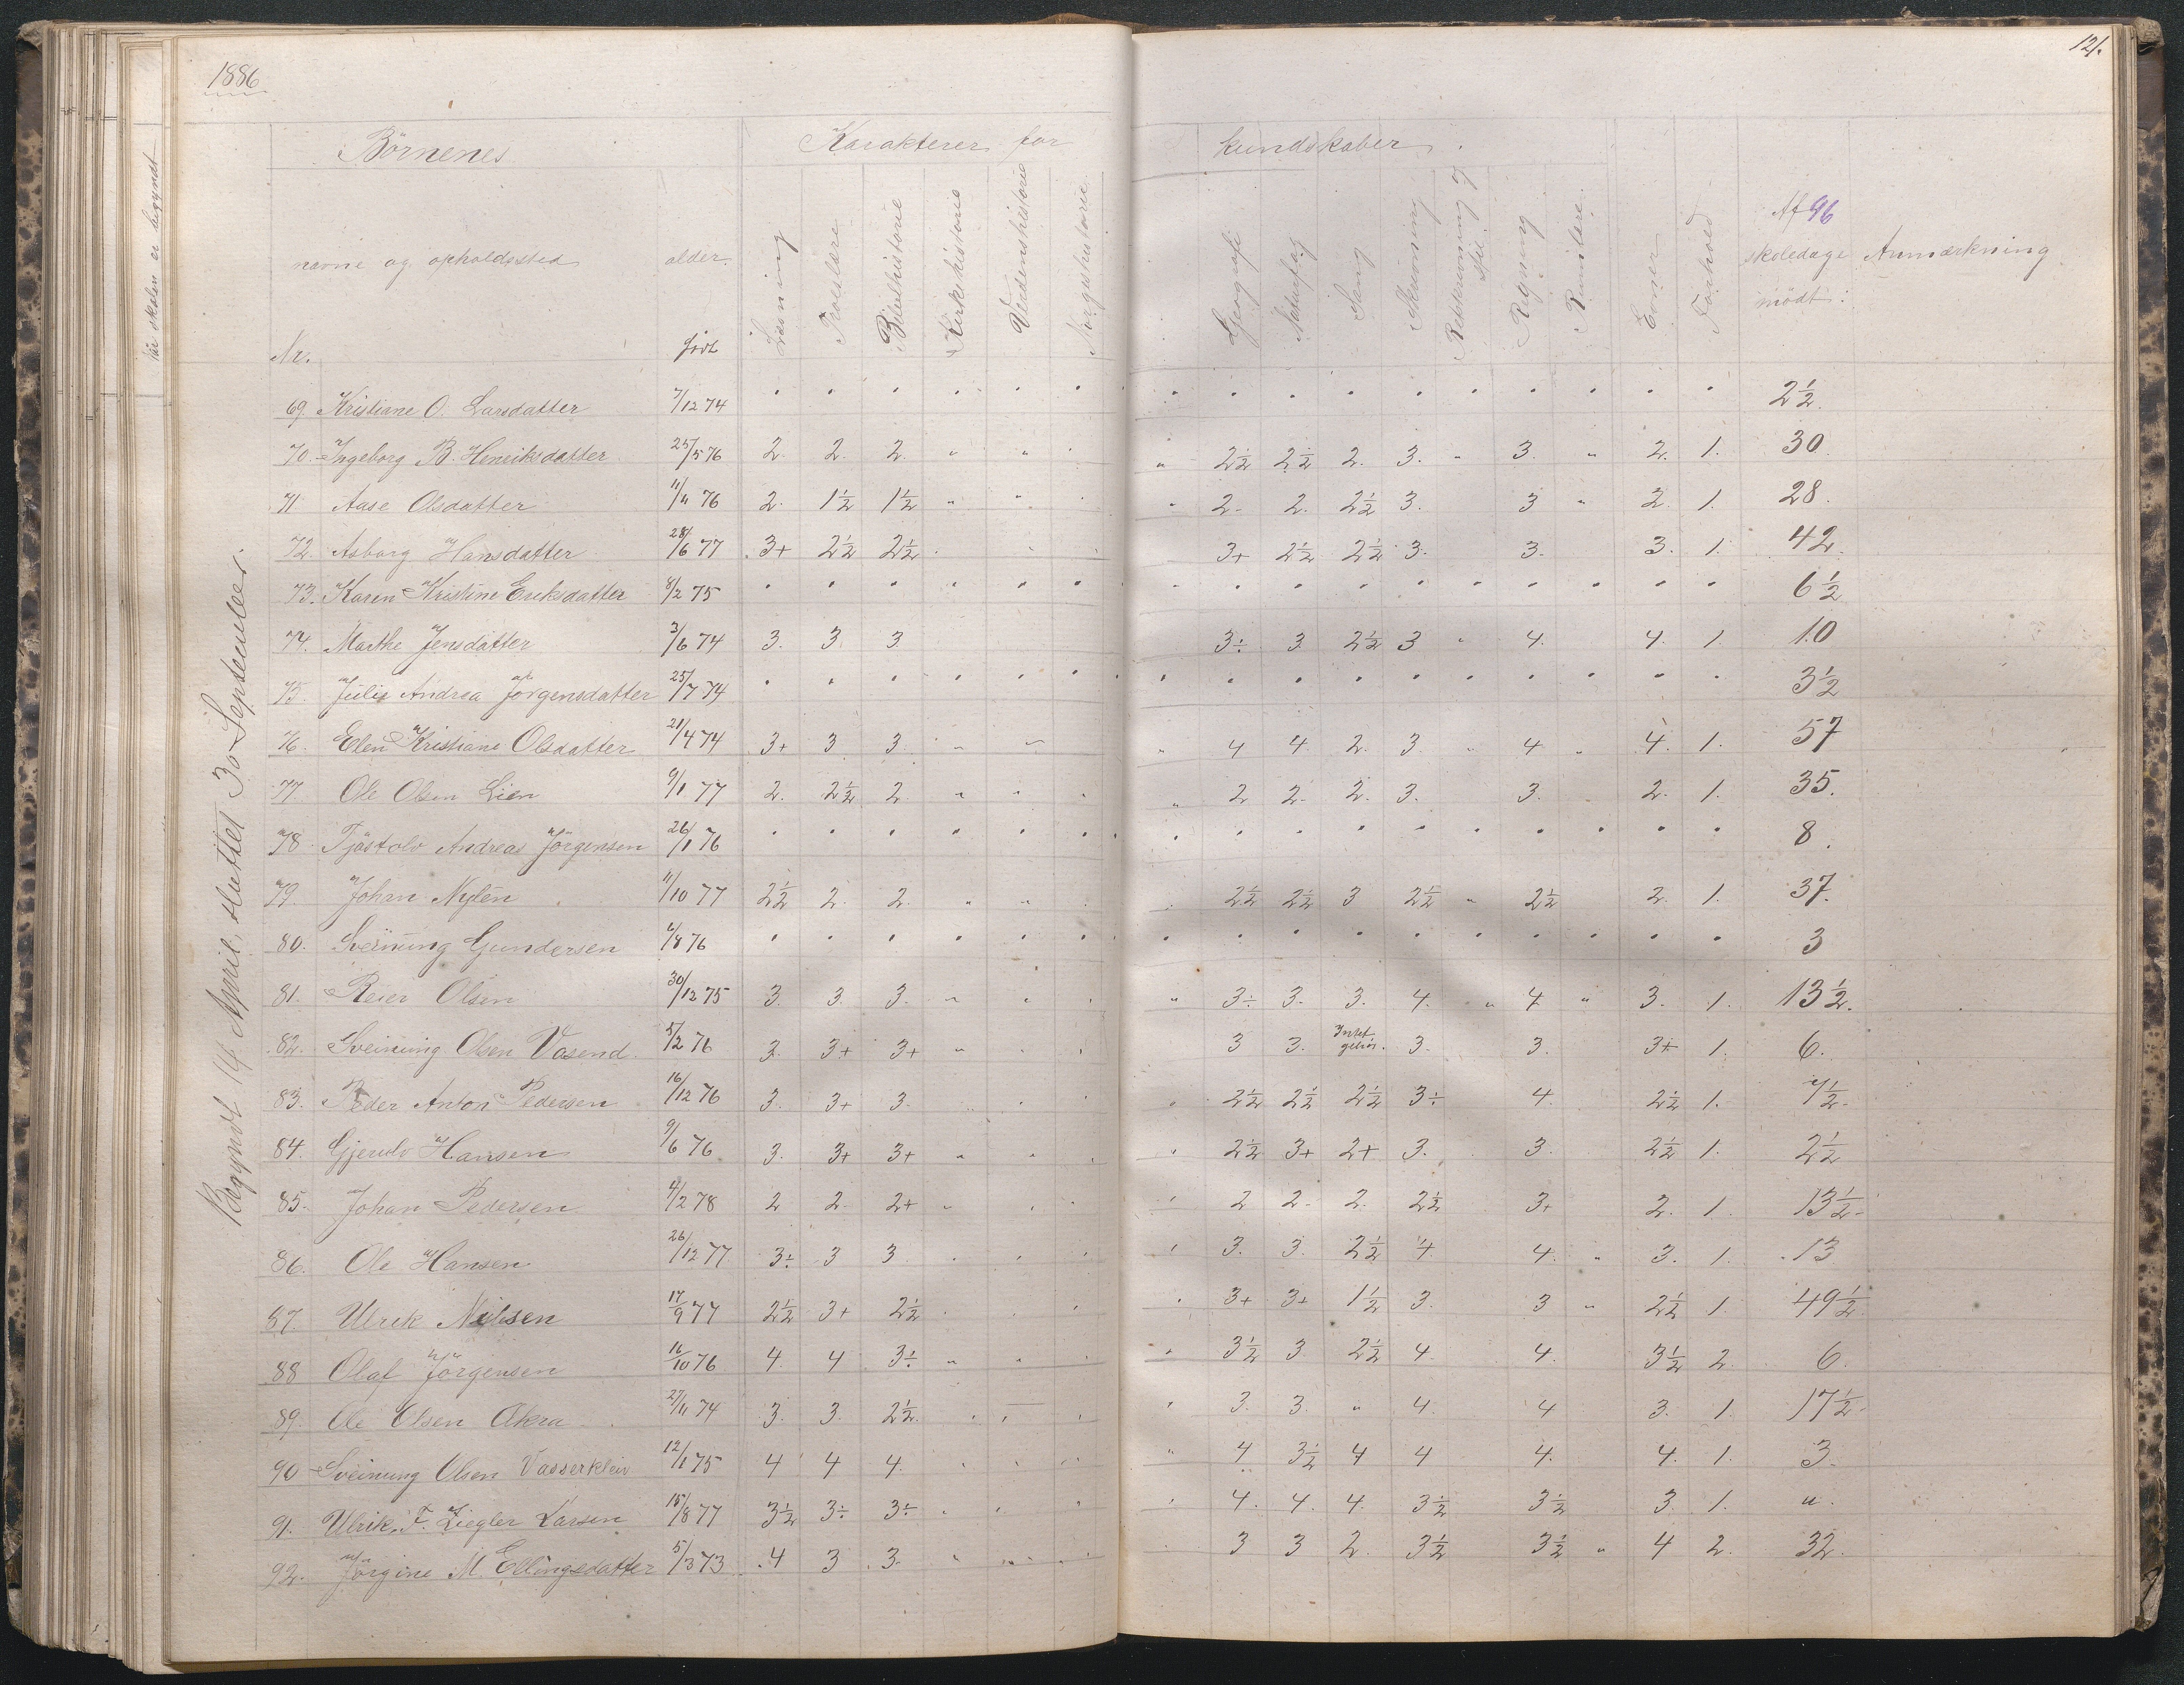 1886
121.
når skolen er begyndt
Begyndt 14 April, sluttet 30 September.
Börnenes
Karakterer for
kundskaber.
Nr.
navne og opholdssted
alder.
födt
Læsning
Troeslære
Bibelhistorie
Kirkehistorie
Verdenshistorie
Norgeshistorie
Geografi
Naturfag
Sang
Skrivning
Retskrivning og stil.
Regning
Rumlære.
Evner
Forhold
Af 96 skoledage mödt:
Anmærkning
69. Kristiane O. Larsdatter 7/12 74 " " " " " " " " " " " " " " " 2½.
70. Ingeborg B. Henriksdatter 25/5 76 2. 2. 2. " " " 2½ 2½ 2. 3. " 3. " 2. 1. 30.
71 Aase Olsdatter 11/11 76 2. 1½ 1½ " " " 2. 2. 2½ 3. 3 " 2. 1. 28.
72. Asborg Hansdatter 28/6 77 3+ 2½ 2½ 3+ 2½ 2½ 3. 3. 3. 1. 42.
73. Karen Kristine Eriksdatter 8/2 75 " " " " " " " " " " " " " " " 6½
74. Marthe Jensdatter 3/6 74 3. 3. 3. 3÷ 3 2½ 3 " 4. 4. 1. 10
75. Julie Andrea Jörgensdatter 25/7 74 " " " " " " " " " " " " " " " 3½
76. Elen Kristiane Olsdatter 21/4 74 3+ 3 3. " " 4 4. 2. 3. " 4 " 4. 1. 57
77. Ole Olsen Lien 9/1 77 2. 2½ 2. " " " 2 2. 2. 3. 3. 2. 1. 35.
78. Tjöstolv Andreas Jörgensen 26/1 76 " " " " " " " " " " " " " " " 8.
79. Johan Nylén 11/10 77 2½ 2. 2. " " 2½ 2½ 3 2½ " 2½ 2. 1. 37.
80. Sveinung Gundersen /8 76 " " " " " " " " " " " " " " " 3
81. Reier Olsen 30/12 75 3. 3. 3. " " 3÷ 3. 3. 4. " 4. " 3. 1. 13½.
82. Sveinung Olsen Vasend. 5/2 76 3. 3+ 3+ " 3 3. Intet gehör. 3. 3. 3+ 1. 6.
83. Peder Anton Pedersen 16/12 76 3. 3+ 3. 2½ 2½ 2½ 3÷ 4. 2½ 1. 7½.
84. Gjerulv Hansen 9/6 76 3. 3+ 3+ " " 2½ 3+ 2+ 3. 3. 2½ 1. 2½
85. Johan Pedersen 4/2 78 2 2. 2+ " 2 2. 2. 2½ 3+ 2. 1. 13½.
86. Ole Hansen 26/12 77. 3÷ 3 3. 3. 3. 2½ 4. 4. " 3. 1. 13
87. Ulrik Nilsen 17/9 77 2½ 3+ 2½ 3+ 3+ 1½ 3. 3 " 2½ 1. 49½.
88 Olaf Jörgensen 16/10 76 4. 4 3÷ " " 3½ 3. 2½ 4. 4. 3½ 2. 6.
89. Ole Olsen Okra 27/11 74 3. 3. 2½. 3. 3. " 4. 4 3. 1. 17½.
90 Sveinung Olsen Vasserkleiv 12/1 75 4 4 4. 4 3½ 4 4 4. 4. 1. 3.
91. Ulrik F. Ziegler Larsen 15/8 77 3½ 3÷ 3÷ 4. 4. 4. 3½ 3½ 3. 1. ".
92. Jörgine M. Ellingsdatter 5/3 73 4 3 3. " " 3 3 2. 3½ 3½ " 4 2. 32.